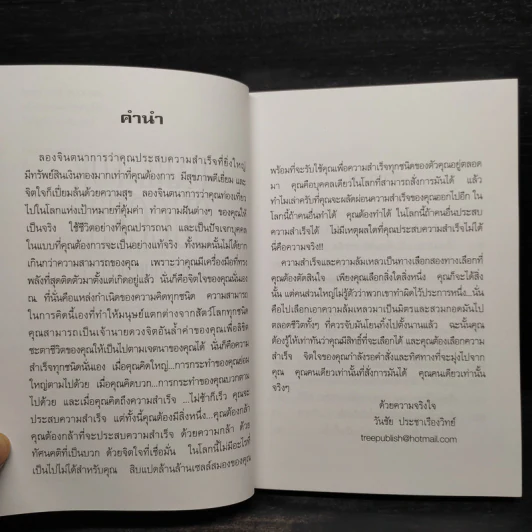 คำนำ
ลองจินตนาการว่าคุณประสบความสำเร็จที่ยิ่งใหญ่
มีทรัพย์สินเงินทองมากเท่าที่คุณต้องการ มีสุขภาพดีเยี่ยม และ
จิตใจก็เปี่ยมล้นด้วยความสุข ลองจินตนาการว่าคุณท่องเที่ยว
ไปในโลกแห่งเป้าหมายที่คุ้มค่า ทำความฝันต่างๆ ของคุณให้
เป็นจริง ใช้ชีวิตอย่างที่คุณปรารถนา และเป็นปัจเจกบุคคล
ในแบบที่คุณต้องการจะเป็นอย่างแท้จริง ทั้งหมดนั้นไม่ได้ยาก
เกินกว่าความสามารถของคุณ เพราะว่าคุณมีเครื่องมือที่ทรง
พลังที่สุดติดตัวมาตั้งแต่เกิดอยู่แล้ว นั่นก็คือจิตใจของคุณนั่นเอง
ณ ที่นั่นคือแหล่งกำเนิดของความคิดทุกชนิด ความสามารถ
ในการคิดนี้เองที่ทำให้มนุษย์แตกต่างจากสัตว์โลกทุกชนิด
คุณสามารถเป็นเจ้านายดวงจิตอันล้ำค่าของคุณเพื่อลิขิต
ชะตาชีวิตของคุณให้เป็นไปตามเจตนาของคุณได้ นั่นก็คือความ
สำเร็จทุกชนิดนั่นเอง เมื่อคุณคิดใหญ่...การกระทำของคุณย่อม
ใหญ่ตามไปด้วย เมื่อคุณคิดบวก...การกระทำของคุณบวกตาม
ไปด้วย และเมื่อคุณคิดถึงความสำเร็จ ...ไม่ช้าก็เร็ว คุณจะ
ประสบความสำเร็จ แต่ทั้งนี้คุณต้องมีสิ่งหนึ่ง...คุณต้องกล้า
คุณต้องกล้าที่จะประสบความสำเร็จ ด้วยความกล้า ด้วย
ทัศนคติที่เป็นบวก ด้วยจิตใจที่เชื่อมั่น ในโลกนี้ไม่มีอะไรที่
เป็นไปไม่ได้สำหรับคุณ สิบแปดล้านล้านเซลล์สมองของคุณ
พร้อมที่จะรับใช้คุณเพื่อความสำเร็จทุกชนิดของตัวคุณอยู่ตลอด
มา คุณคือบุคคลเดียวในโลกที่สามารถสั่งการมันได้ แล้ว
ทำไมเล่าครับที่คุณจะผลัดผ่อนความสำเร็จของคุณออกไปอีก ใน
โลกนี้ถ้าคนอื่นทำได้ คุณต้องทำได้ ในโลกนี้ถ้าคนอื่นประสบ
ความสำเร็จได้ ไม่มีเหตุผลใดที่คุณประสบความสำเร็จไม่ได้
นี่คือความจริง!!!
ความสำเร็จและความล้มเหลวเป็นทางเลือกสองทางเลือกที่
คุณต้องตัดสินใจ เพียงคุณเลือกสิ่งใดสิ่งหนึ่ง คุณก็จะได้สิ่ง
นั้น แต่คนส่วนใหญ่ไม่รู้ตัวว่าพวกเขาทำผิดไว้ประการหนึ่ง...นั่น
คือไปเลือกเอาความล้มเหลวมาเป็นมิตรและสวมกอดมันไป
ตลอดชีวิตทั้งๆ ที่ควรจับมันโยนทิ้งไปตั้งนานแล้ว ฉะนั้นคุณ
ต้องรู้ให้เท่าทันว่าคุณมีสิทธิ์ที่จะเลือกได้ และคุณต้องเลือกความ
สำเร็จ จิตใจของคุณกำลังรอคำสั่งและทิศทางที่จะมุ่งไปจาก
คุณ คุณคนเดียวเท่านั้นที่สั่งการมันได้ คุณคนเดียวเท่านั้น
จริงๆ
ด้วยความจริงใจ
วันชัย ประชาเรืองวิทย์
treepublish@hotmail.com